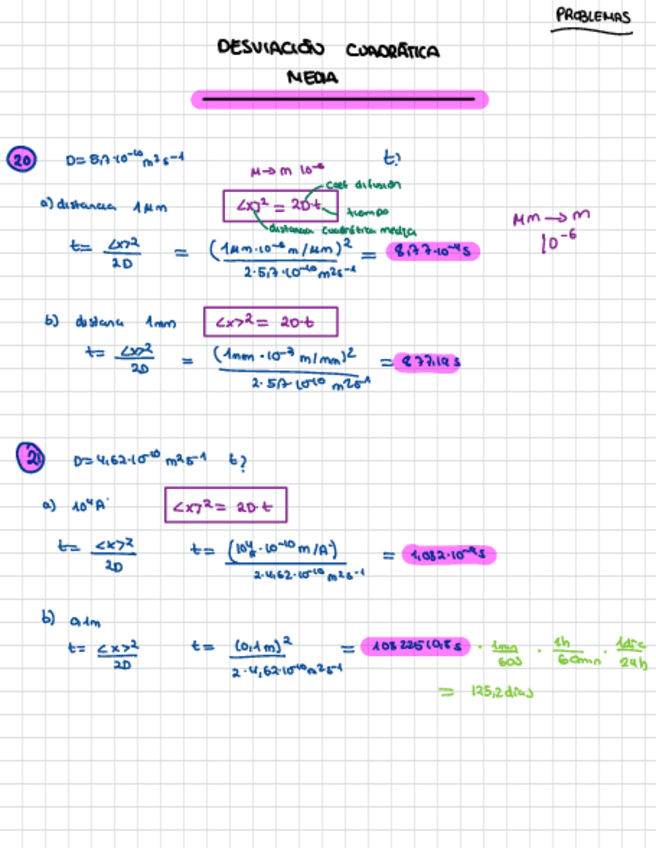 PROBLEMAS
DESVIACIÓN CUADRÁTICA
MEDIA
20 D= 5,7·10⁻¹⁰ m² s⁻¹ t?
μ→m 10⁻⁶
coef difusión
a) distancia 1μm <x>² = 2D·t tiempo
distancia cuadrática media
μm → m
10⁻⁶
t= <x>²/2D = (1μm·10⁻⁶ m/μm)²/2·5,7·10⁻¹⁰ m²s⁻¹ = 8,77·10⁻⁴s
b) distanc 1mm <x>² = 2D·t
t= <x>²/2D = (1mm·10⁻³ m/mm)²/2·5,7·10⁻¹⁰ m²s⁻¹ = 877,19 s
21 D= 4,62·10⁻¹⁰ m²s⁻¹ t?
a) 10⁴A <x>² = 2D·t
t= <x>²/2D t= (10⁴·10⁻¹⁰ m/A)/2·4,62·10⁻¹⁰ m²s⁻¹ = 1,082·10⁻³s
b) 0,1m
t= <x>²/2D t= (0,1m)²/2·4,62·10⁻¹⁰ m²s⁻¹ = · 1min/60s · 1h/60min · 1día/24h
= 125,2 días